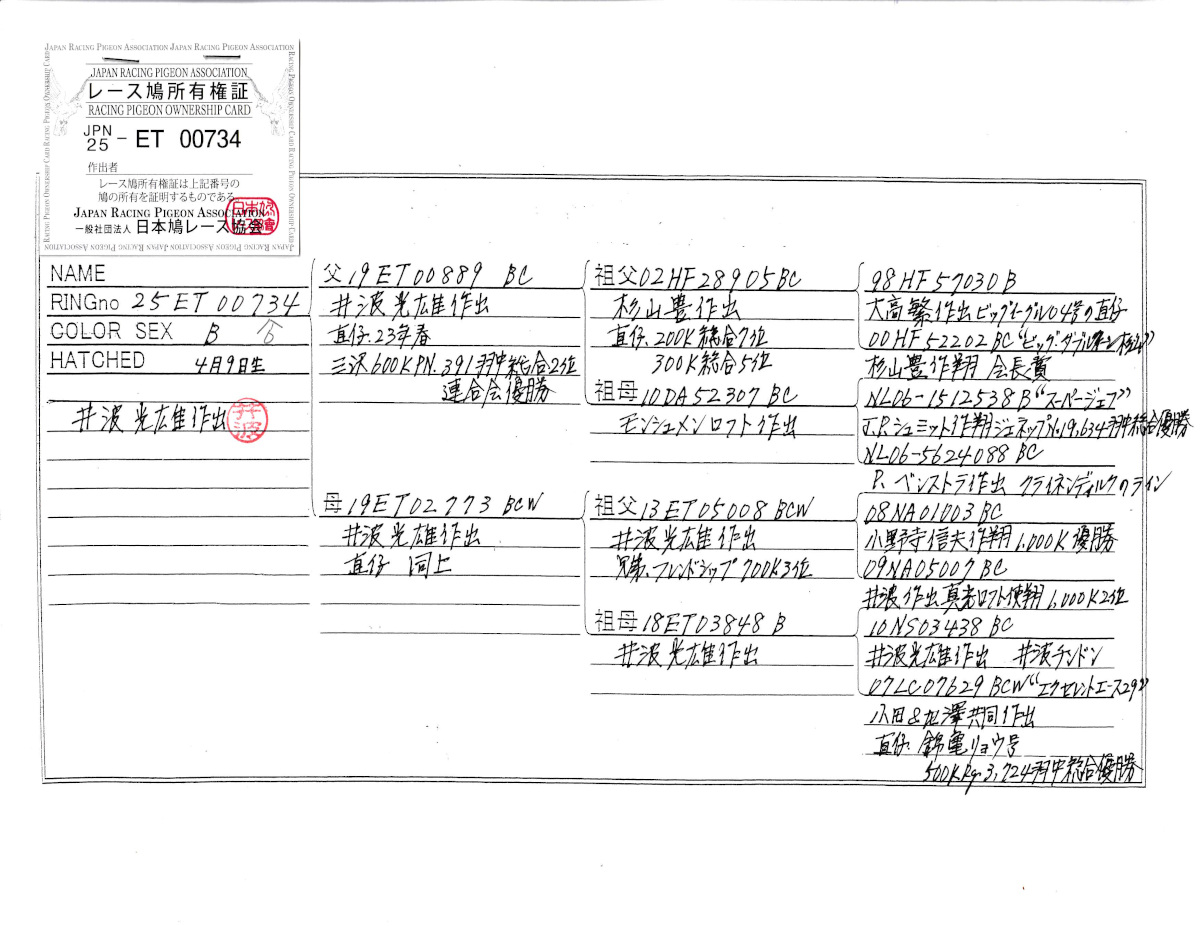 JAPAN RACING PIGEON ASSOCIATION JAPAN RACING PIGEON ASSOCIATION
JAPAN RACING PIGEON ASSOCIATION
レース鳩所有権証
RACING PIGEON OWNERSHIP CARD
JPN
25 - ET 00734
作出者
レース鳩所有権証は上記番号の
鳩の所有を証明するものである。
JAPAN RACING PIGEON ASSOCIATION
一般社団法人 日本鳩レース協会
NAME
RINGno 25ET00734
COLOR SEX B 合
HATCHED 4月9日生
井波光雄作出
井波
父 19ET00889 BC
井波光雄作出
直仔.23年春
三沢600KPN.391羽中総合2位
連合会優勝
母 19ET02773 BCW
井波光雄作出
直仔 同上
祖父 02HF28905BC
杉山豊作出
直仔.200K総合7位
300K総合5位
祖母 10DA52307 BC
モンシュメンロフト作出
祖父 13ET05008 BCW
井波光雄作出
兄弟、フレンドシップ700K3位
祖母 18ET03848 B
井波光雄作出
98HF57030B
大高繁作出ビッグイーグル04号の直仔
00HF52202BC
杉山豊作翔 会長賞
NL06-1512538B“スーパージェフ”
J.P.シュミット作翔ジェネップN.19,634羽中総合優勝
NL06-5624088 BC
P、ベンストラ作出 クライネンディルクのライン
08NA01003BC
小野寺信夫作翔1,000K優勝
09NA05007BC
井波作出真光ロフト使翔1,000K2位
10NS03438 BC
井波光雄作出 井波チンドン
07LC07629BCW“エクセレントエース29”
共同作出
直仔 錦亀リョウ号
500KRg.3,724羽中総合優勝